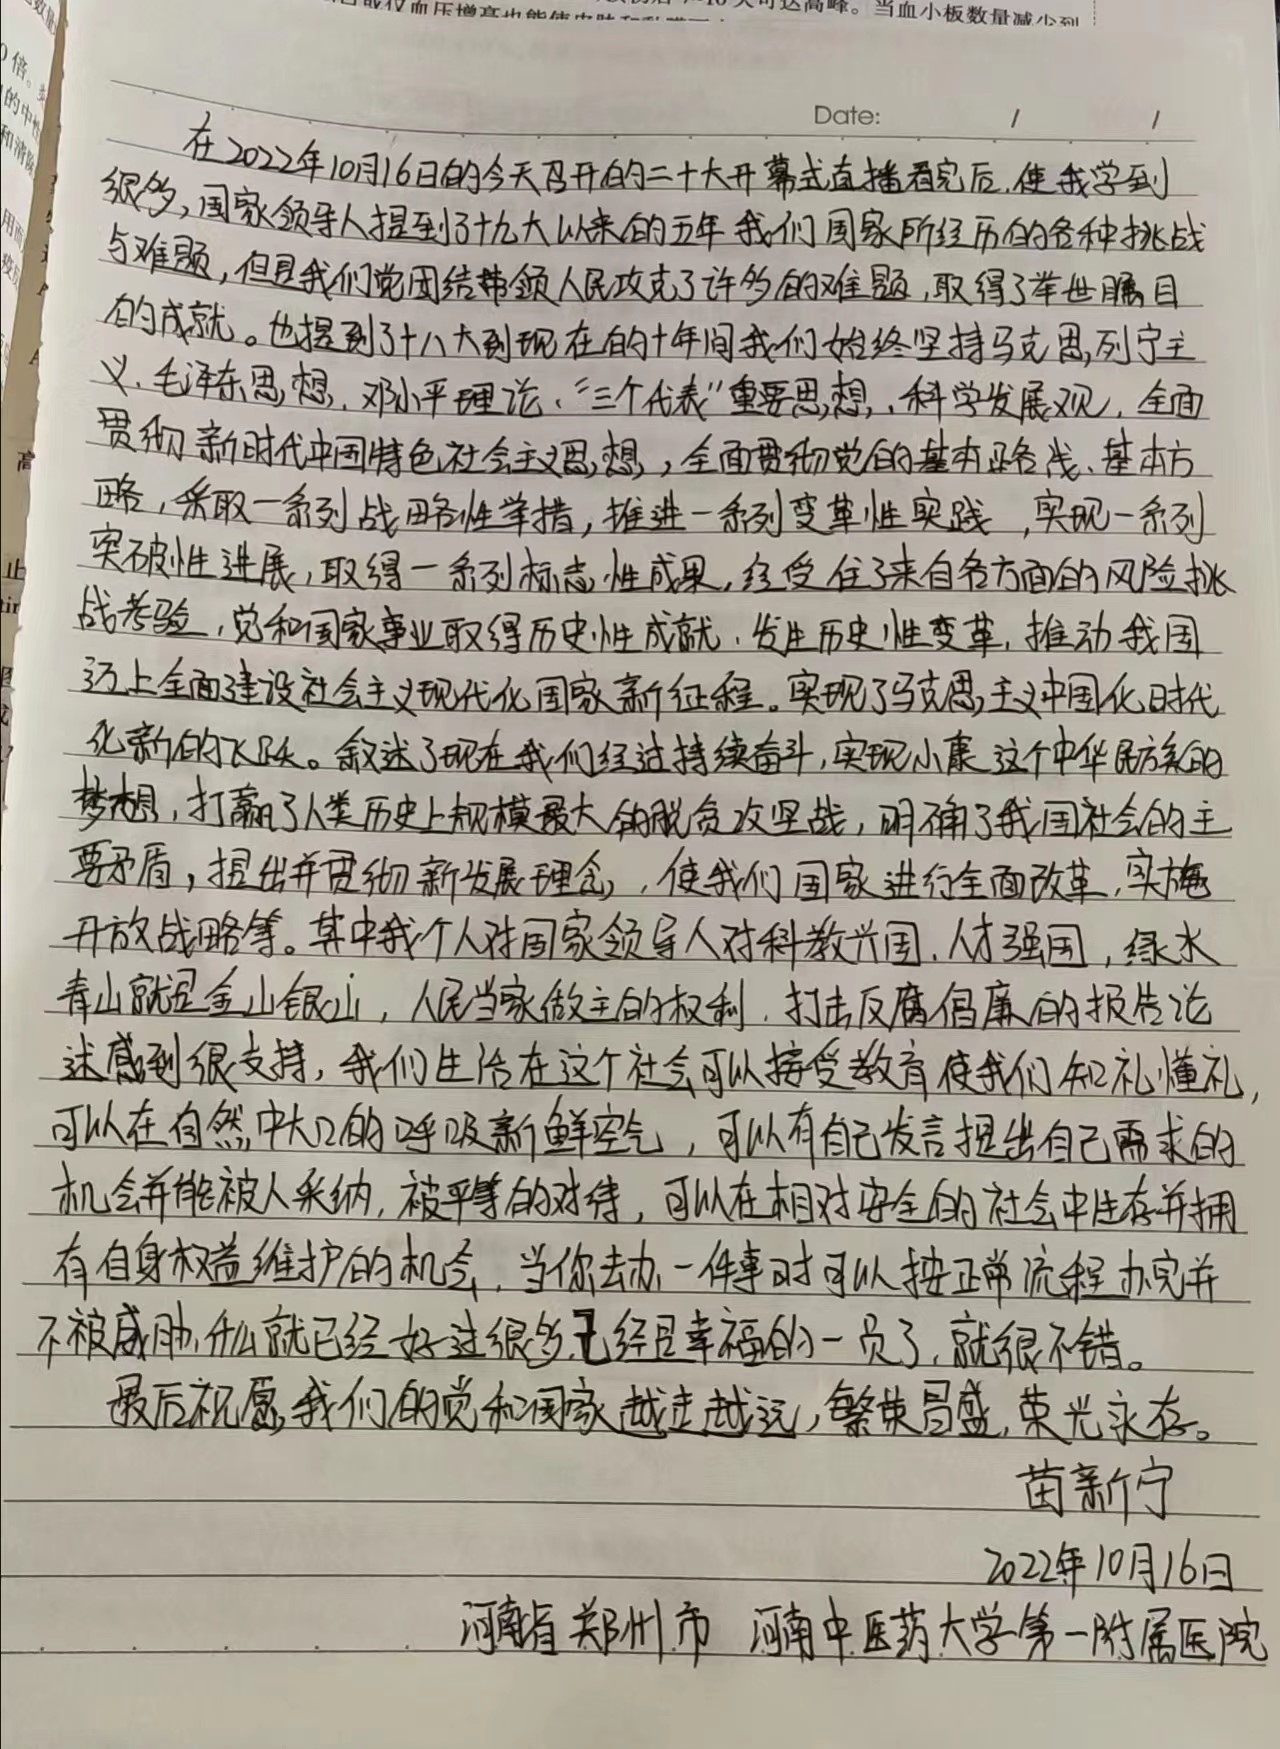 高峰。当血小板数量减少到
Date: / /
在2022年10月16日的今天召开的二十大开幕式直播看完后,使我学到
很多,国家领导人提到了十九大以来的五年我们国家所经历的各种挑战
与难题,但是我们党团结带领人民攻克了许多的难题,取得了举世瞩目
的成就。也提到了十八大到现在的十年间我们始终坚持马克思,列宁主
义、毛泽东思想、邓小平理论、“三个代表”重要思想、科学发展观,全面
贯彻新时代中国特色社会主义思想,全面贯彻党的基本路线、基本方
略,采取一系列战略性举措,推进一系列变革性实践,实现一系列
突破性进展,取得一系列标志性成果,经受住了来自各方面的风险挑
战考验,党和国家事业取得历史性成就、发生历史性变革,推动我国
迈上全面建设社会主义现代化国家新征程。实现了马克思主义中国化时代
化新的飞跃。叙述了现在我们经过持续奋斗,实现小康这个中华民族的
梦想,打赢了人类历史上规模最大的脱贫攻坚战,明确了我国社会的主
要矛盾,提出并贯彻新发展理念,使我们国家进行全面改革,实施
开放战略等。其中我个人对国家领导人对科教兴国、人才强国,绿水
青山就是金山银山,人民当家做主的权利,打击反腐倡廉的报告论
述感到很支持,我们生活在这个社会可以接受教育使我们知礼懂礼,
可以在自然中大口的呼吸新鲜空气,可以有自己发言提出自己需求的
机会并能被人采纳,被平等的对待,可以在相对安全的社会中生存并拥
有自身权益维护的机会,当你去办一件事时可以按正常流程办完并
不被威胁,什么就已经好过很多,已经是幸福的一员了,就很不错。
最后祝愿我们的党和国家越走越远,繁荣昌盛,荣光永存。
苗新宁
2022年10月16日
河南省郑州市 河南中医药大学第一附属医院